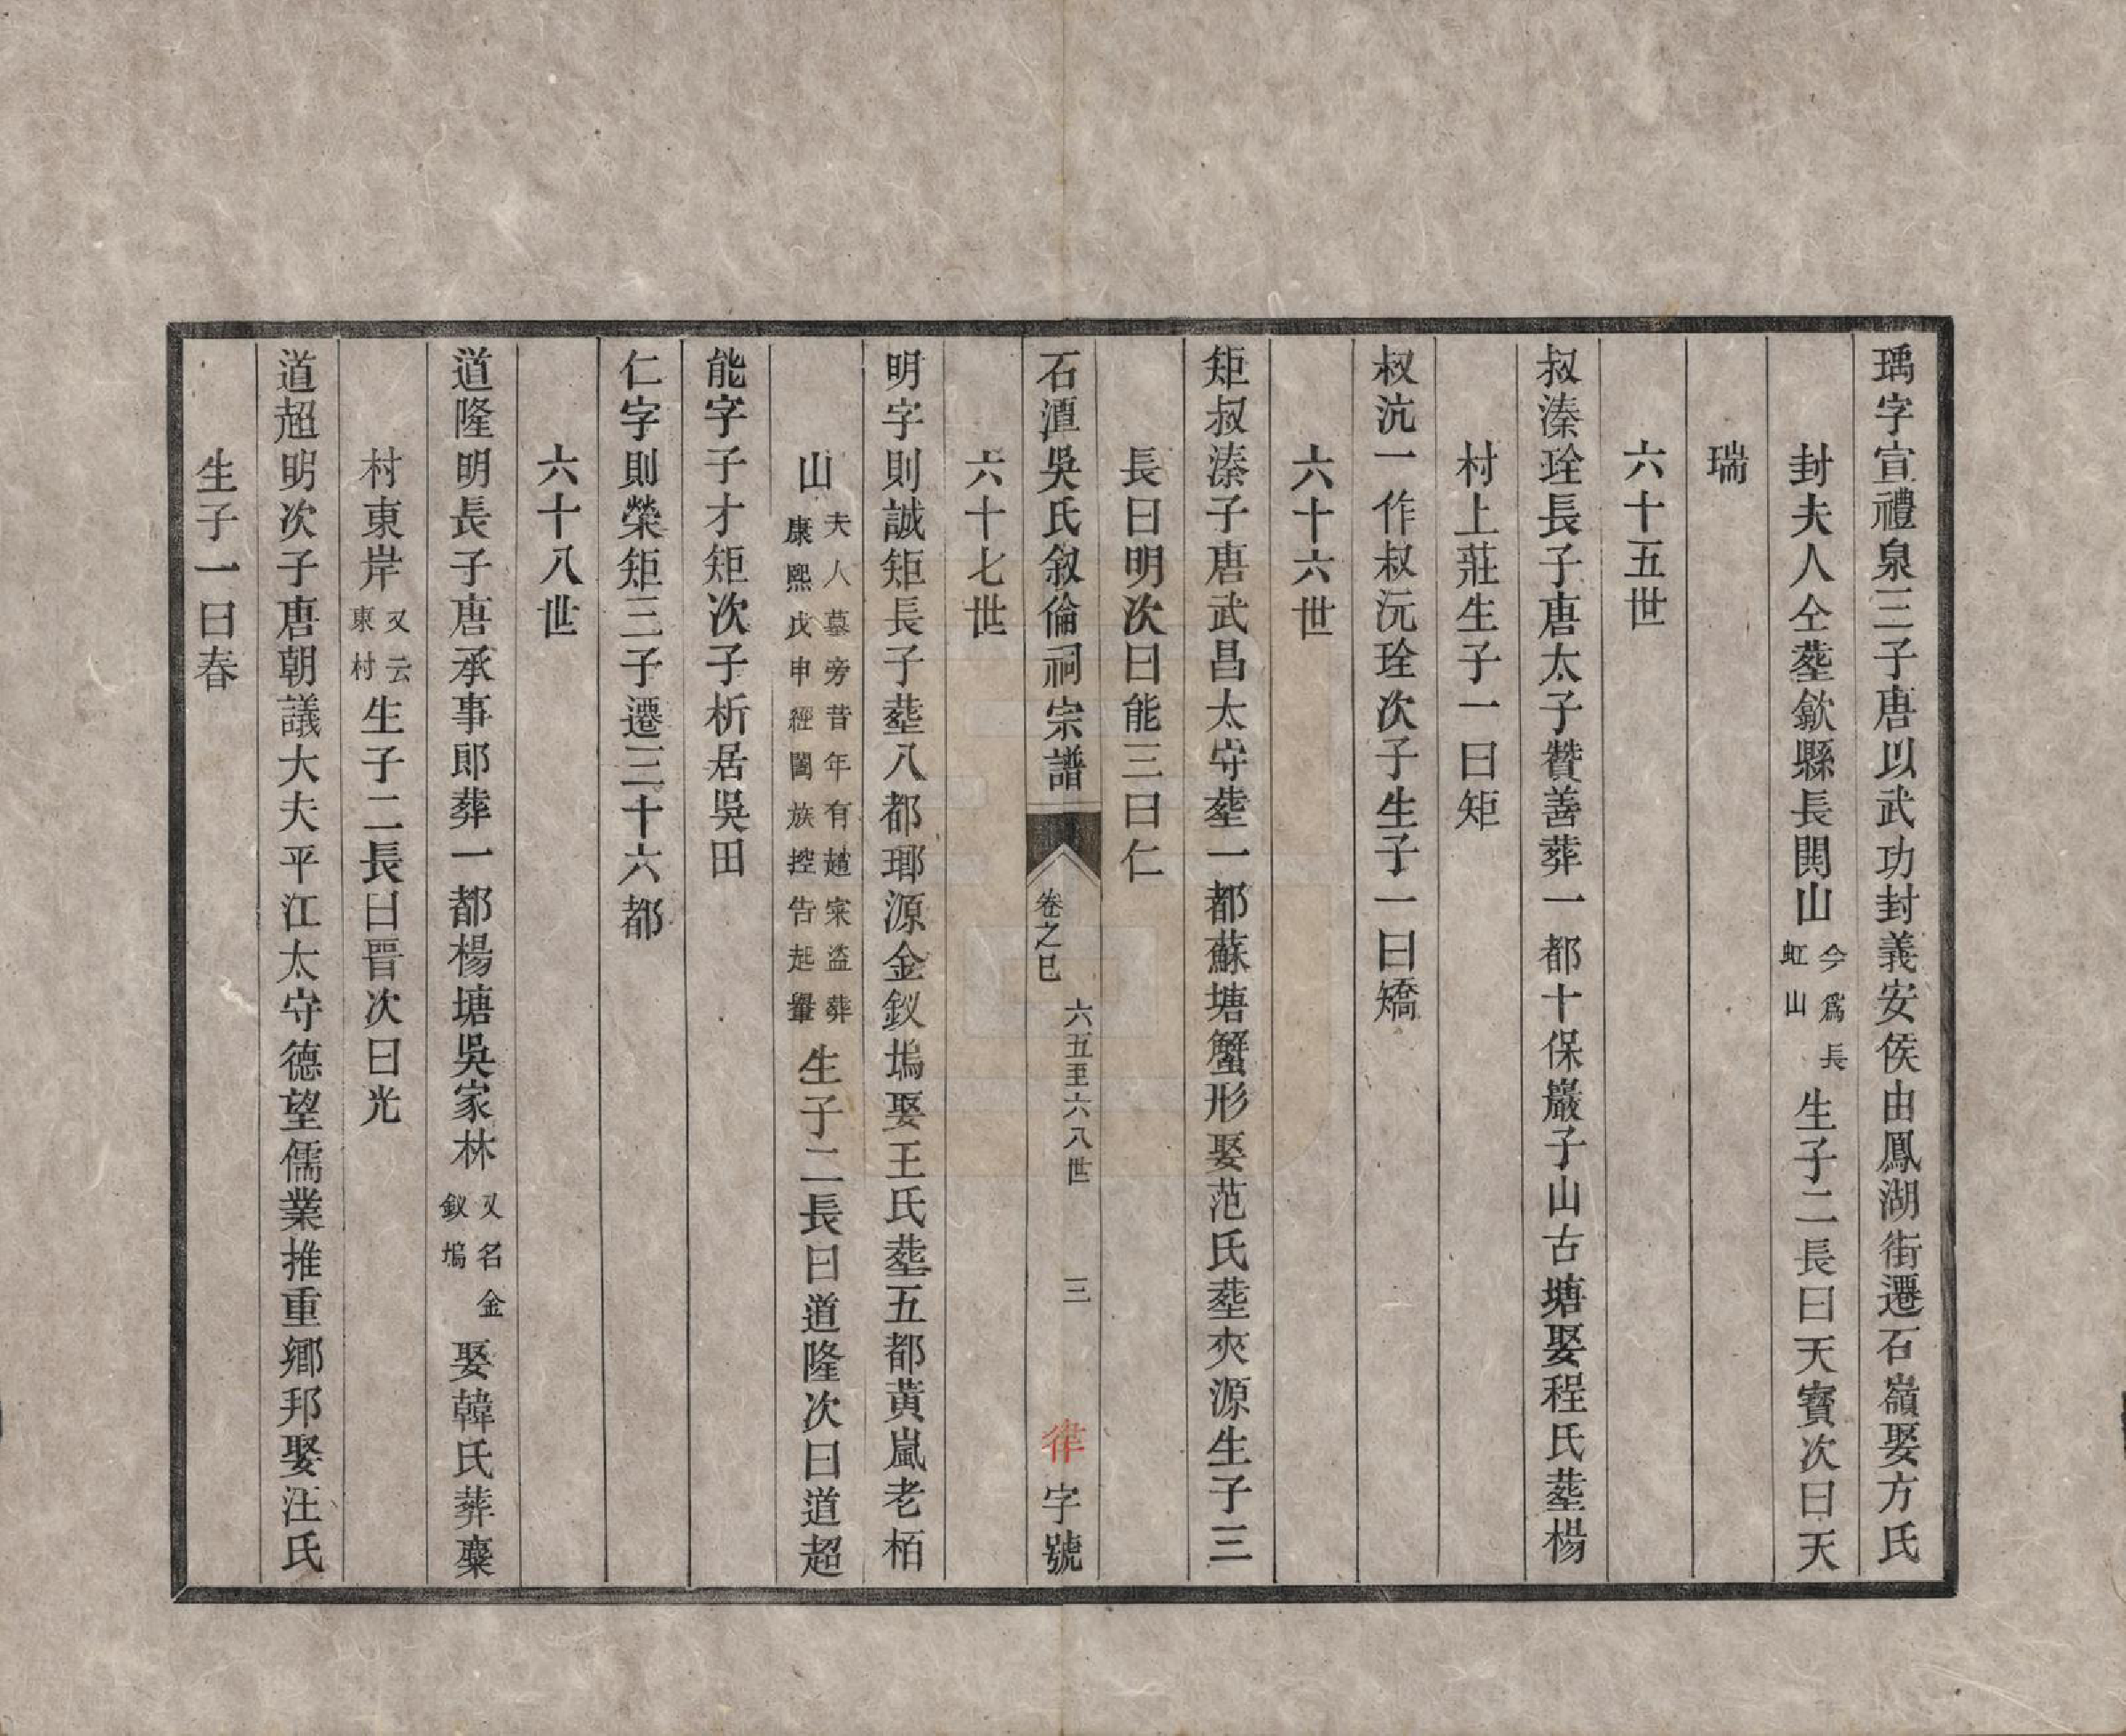 瑀字宣禮泉三子唐以武功封義安侯由鳳湖街遷石嶺娶方氏
封夫人仝塟歙縣長閎山今爲長虹山生子二長曰天寶次曰天
瑞
六十五世
叔溱珤長子唐太子贊善葬一都十保巖子山古塘娶程氏塟楊
村上莊生子一曰矩
叔沆一作叔沅珤次子生子一曰矯
六十六世
矩叔溱子唐武昌太守塟一都蘇塘蟹形娶范氏塟夾源生子三
長曰明次曰能三曰仁
石潭吳氏叙倫祠宗譜 卷之巳 六五至六八世 三 律字號
六十七世
明字則誠矩長子塟八都瑯源金釵塢娶王氏塟五都黃嵐老栢
山夫人墓旁昔年有趙寀盜葬康熙戊申經闔族控告起轝生子二長曰道隆次曰道超
能字子才矩次子析居吳田
仁字則榮矩三子遷三十六都
六十八世
道隆明長子唐承事郎葬一都楊塘吳家林又名金釵塢娶韓氏葬棗
村東岸又云東村生子二長曰晋次曰光
道超明次子唐朝議大夫平江太守德望儒業推重鄉邦娶汪氏
生子一曰春